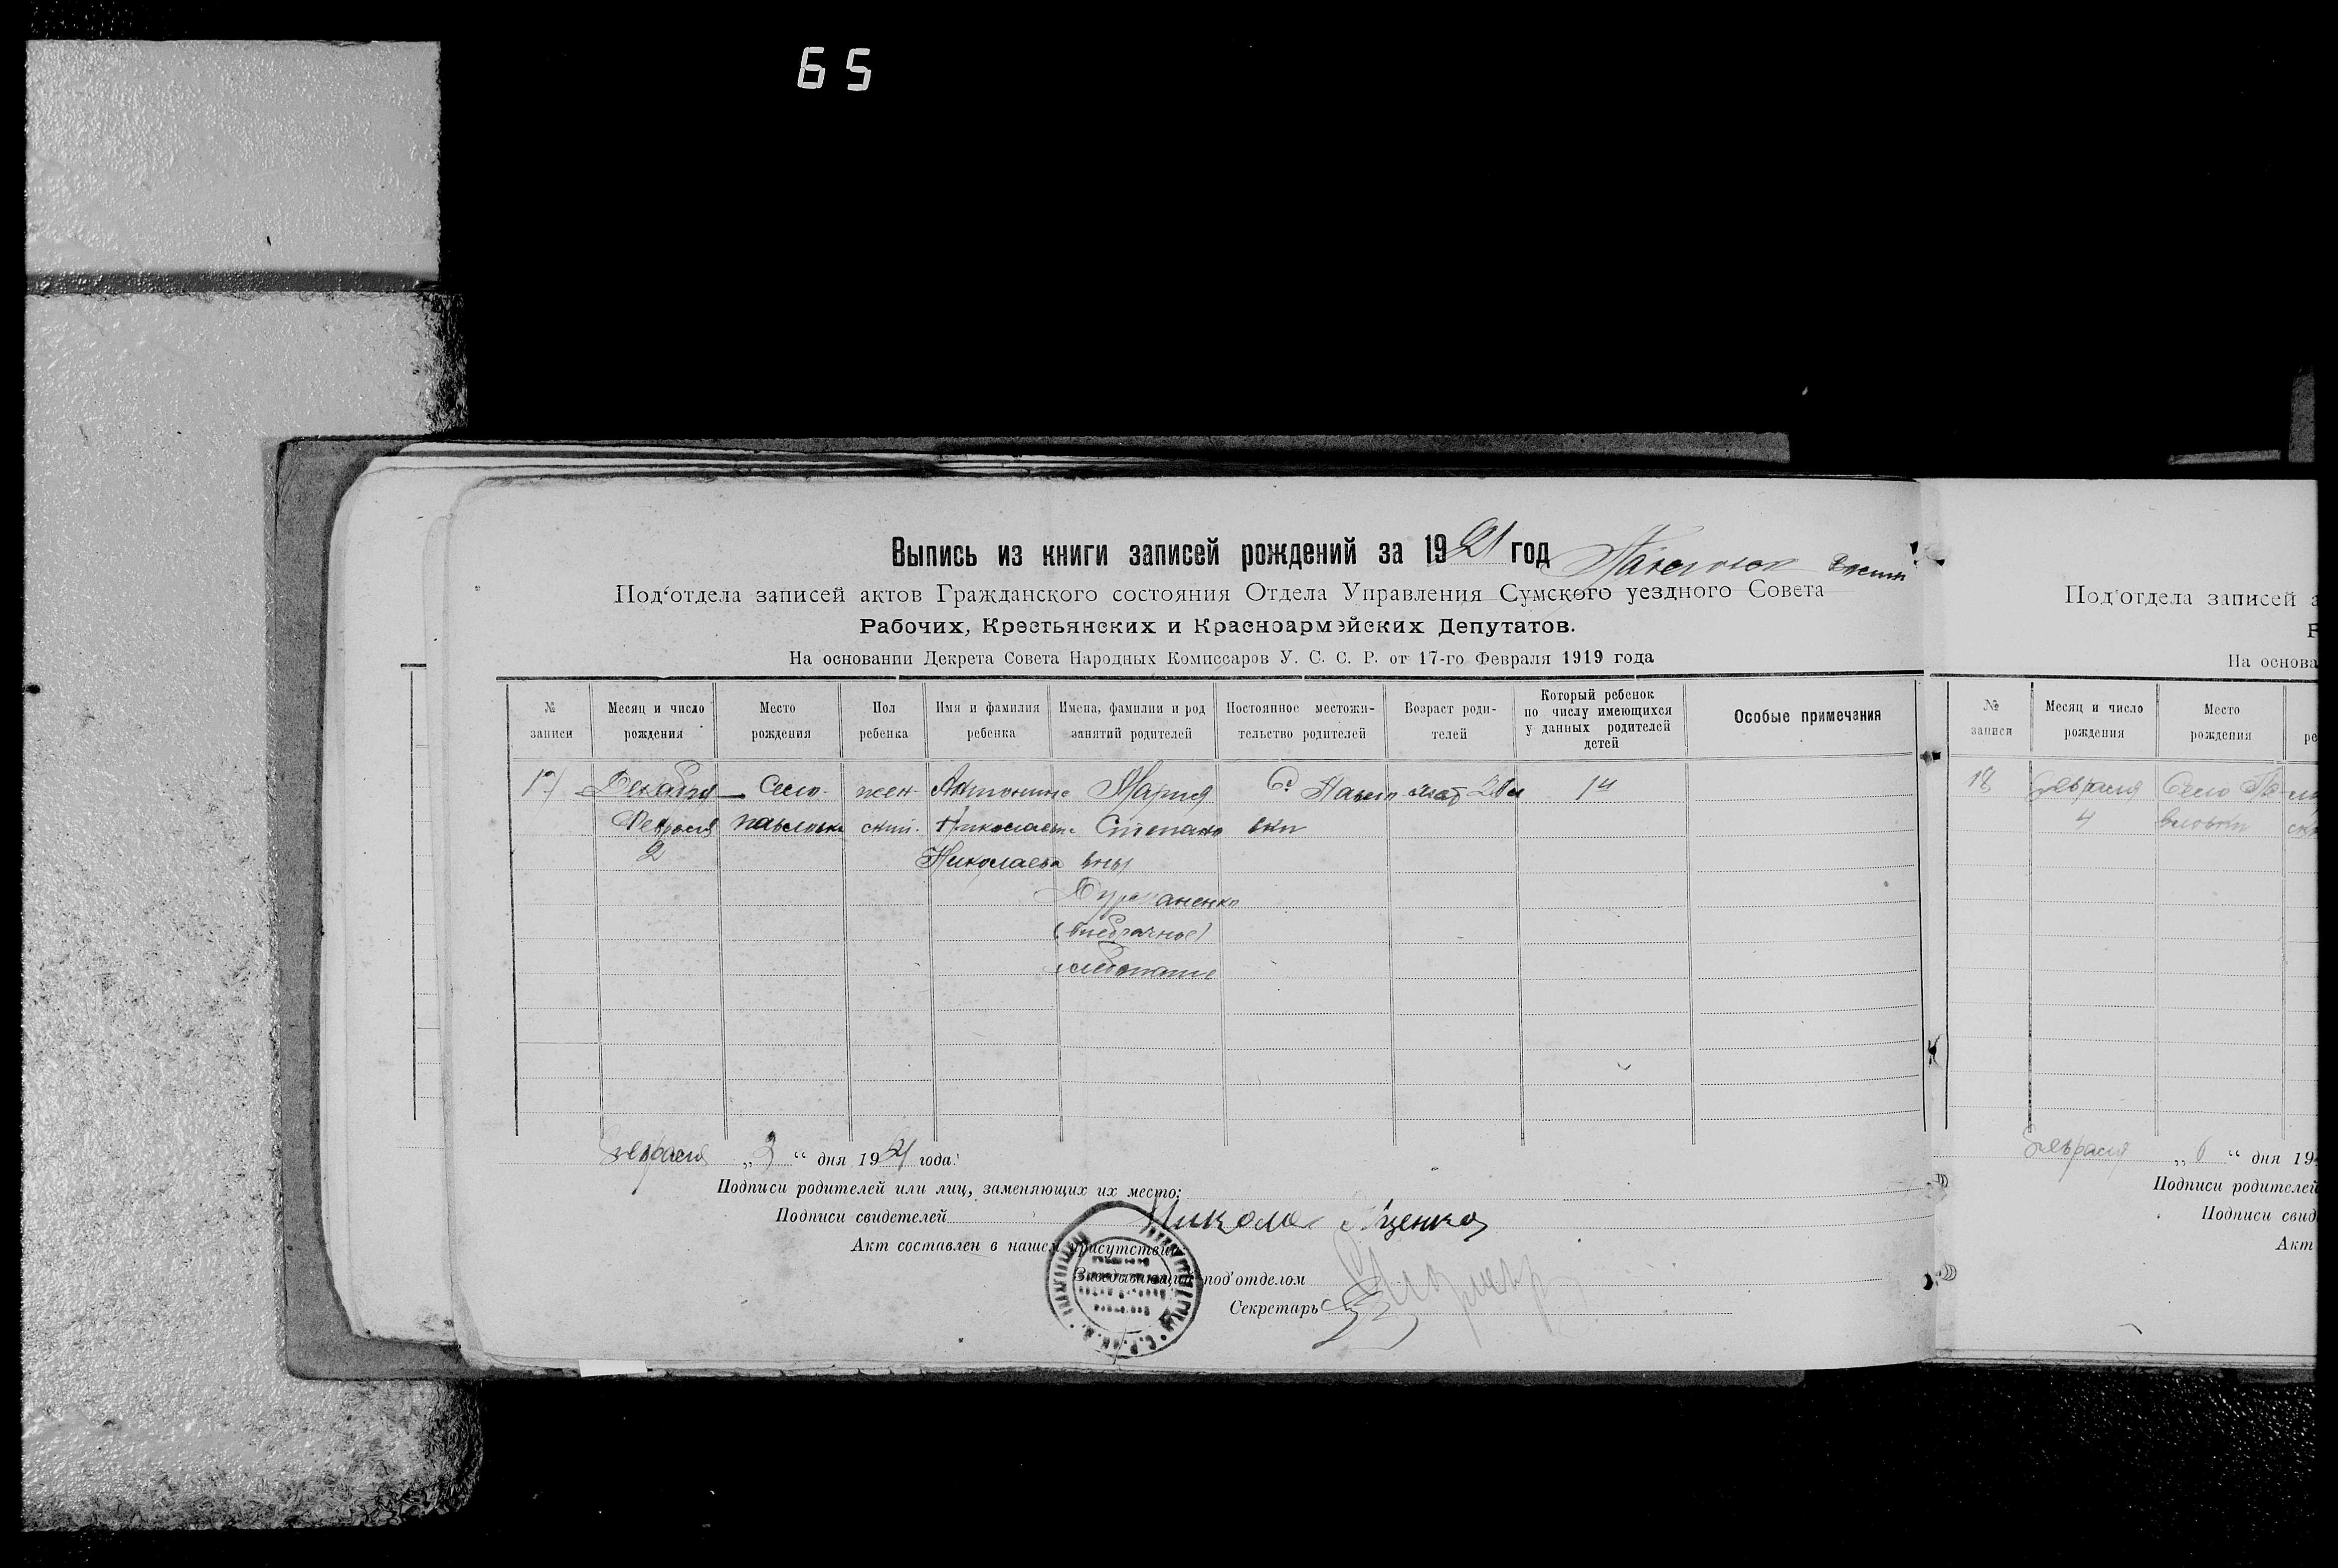 65
Выпись из книги записей рождений за 1921 год
Под‘отдела записей актов Гражданского состояния Отдела Управления Сумского уездного Совета
Рабочих, Крестьянских и Красноармейских Депутатов.
На основании Декрета Совета Народных Комиссаров У. С. С. Р. от 17-го Февраля 1919 года
№ записи
Месяц и число рождения
Место рождения
Пол ребенка
Имя и фамилия ребенка
Имена, фамилии и род занятий родителей
Постоянное местожительство родителей
Возраст родителей
Который ребенок по числу имеющихся у данных родителей детей
Особые примечания
17 Декабря Село жен- Антонина Мария С. Павло
Февраля павловка ский. Николаевна Степано вки
2 Николаева вны
(внебрачное)
Февраля „3“ дня 1921 года.
Подписи родителей или лиц, заменяющих их место:
Подписи свидетелей Никола Яценко
Акт составлен в нашем присутствии
Заведывающий под‘отделом
Секретарь
Под‘отдела записей
На основа
№ записи
Месяц и число рождения
Место рождения
18 Февраля Село Па
4 вловки
Февраля „6“ дня 19
Подписи родителей
Подписи свид
Акт